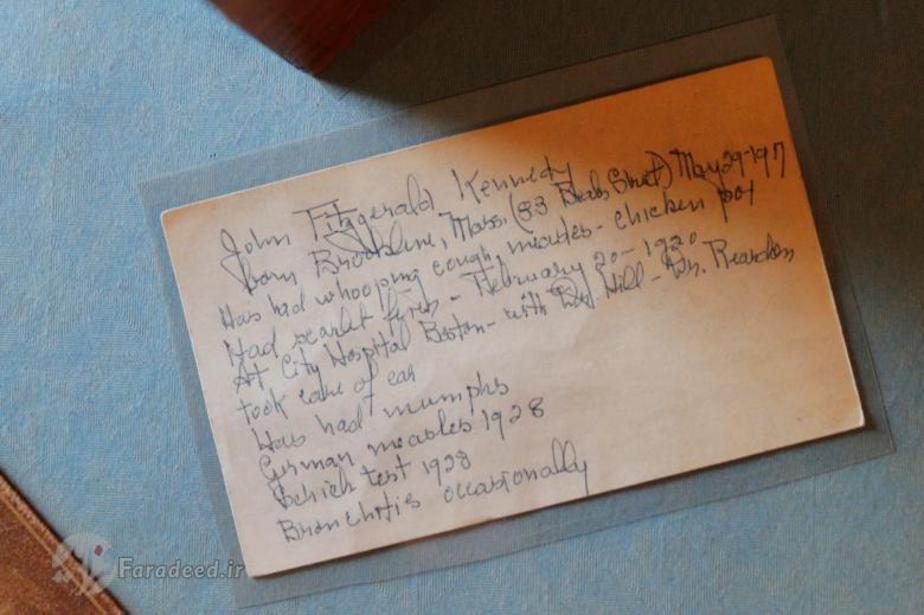 John Fitzgerald Kennedy
born Brookline, Mass. (83 Beals Street) May 29-1917
Has had whooping cough, measles - chicken pox
Had scarlet fever - February 20 - 1920
At City Hospital Boston - with Dr. Hill - Dr. Reardon
took care of ear
Has had mumphs
German measles 1928
Schick test 1928
Bronchitis occasionally
Faradeed.ir